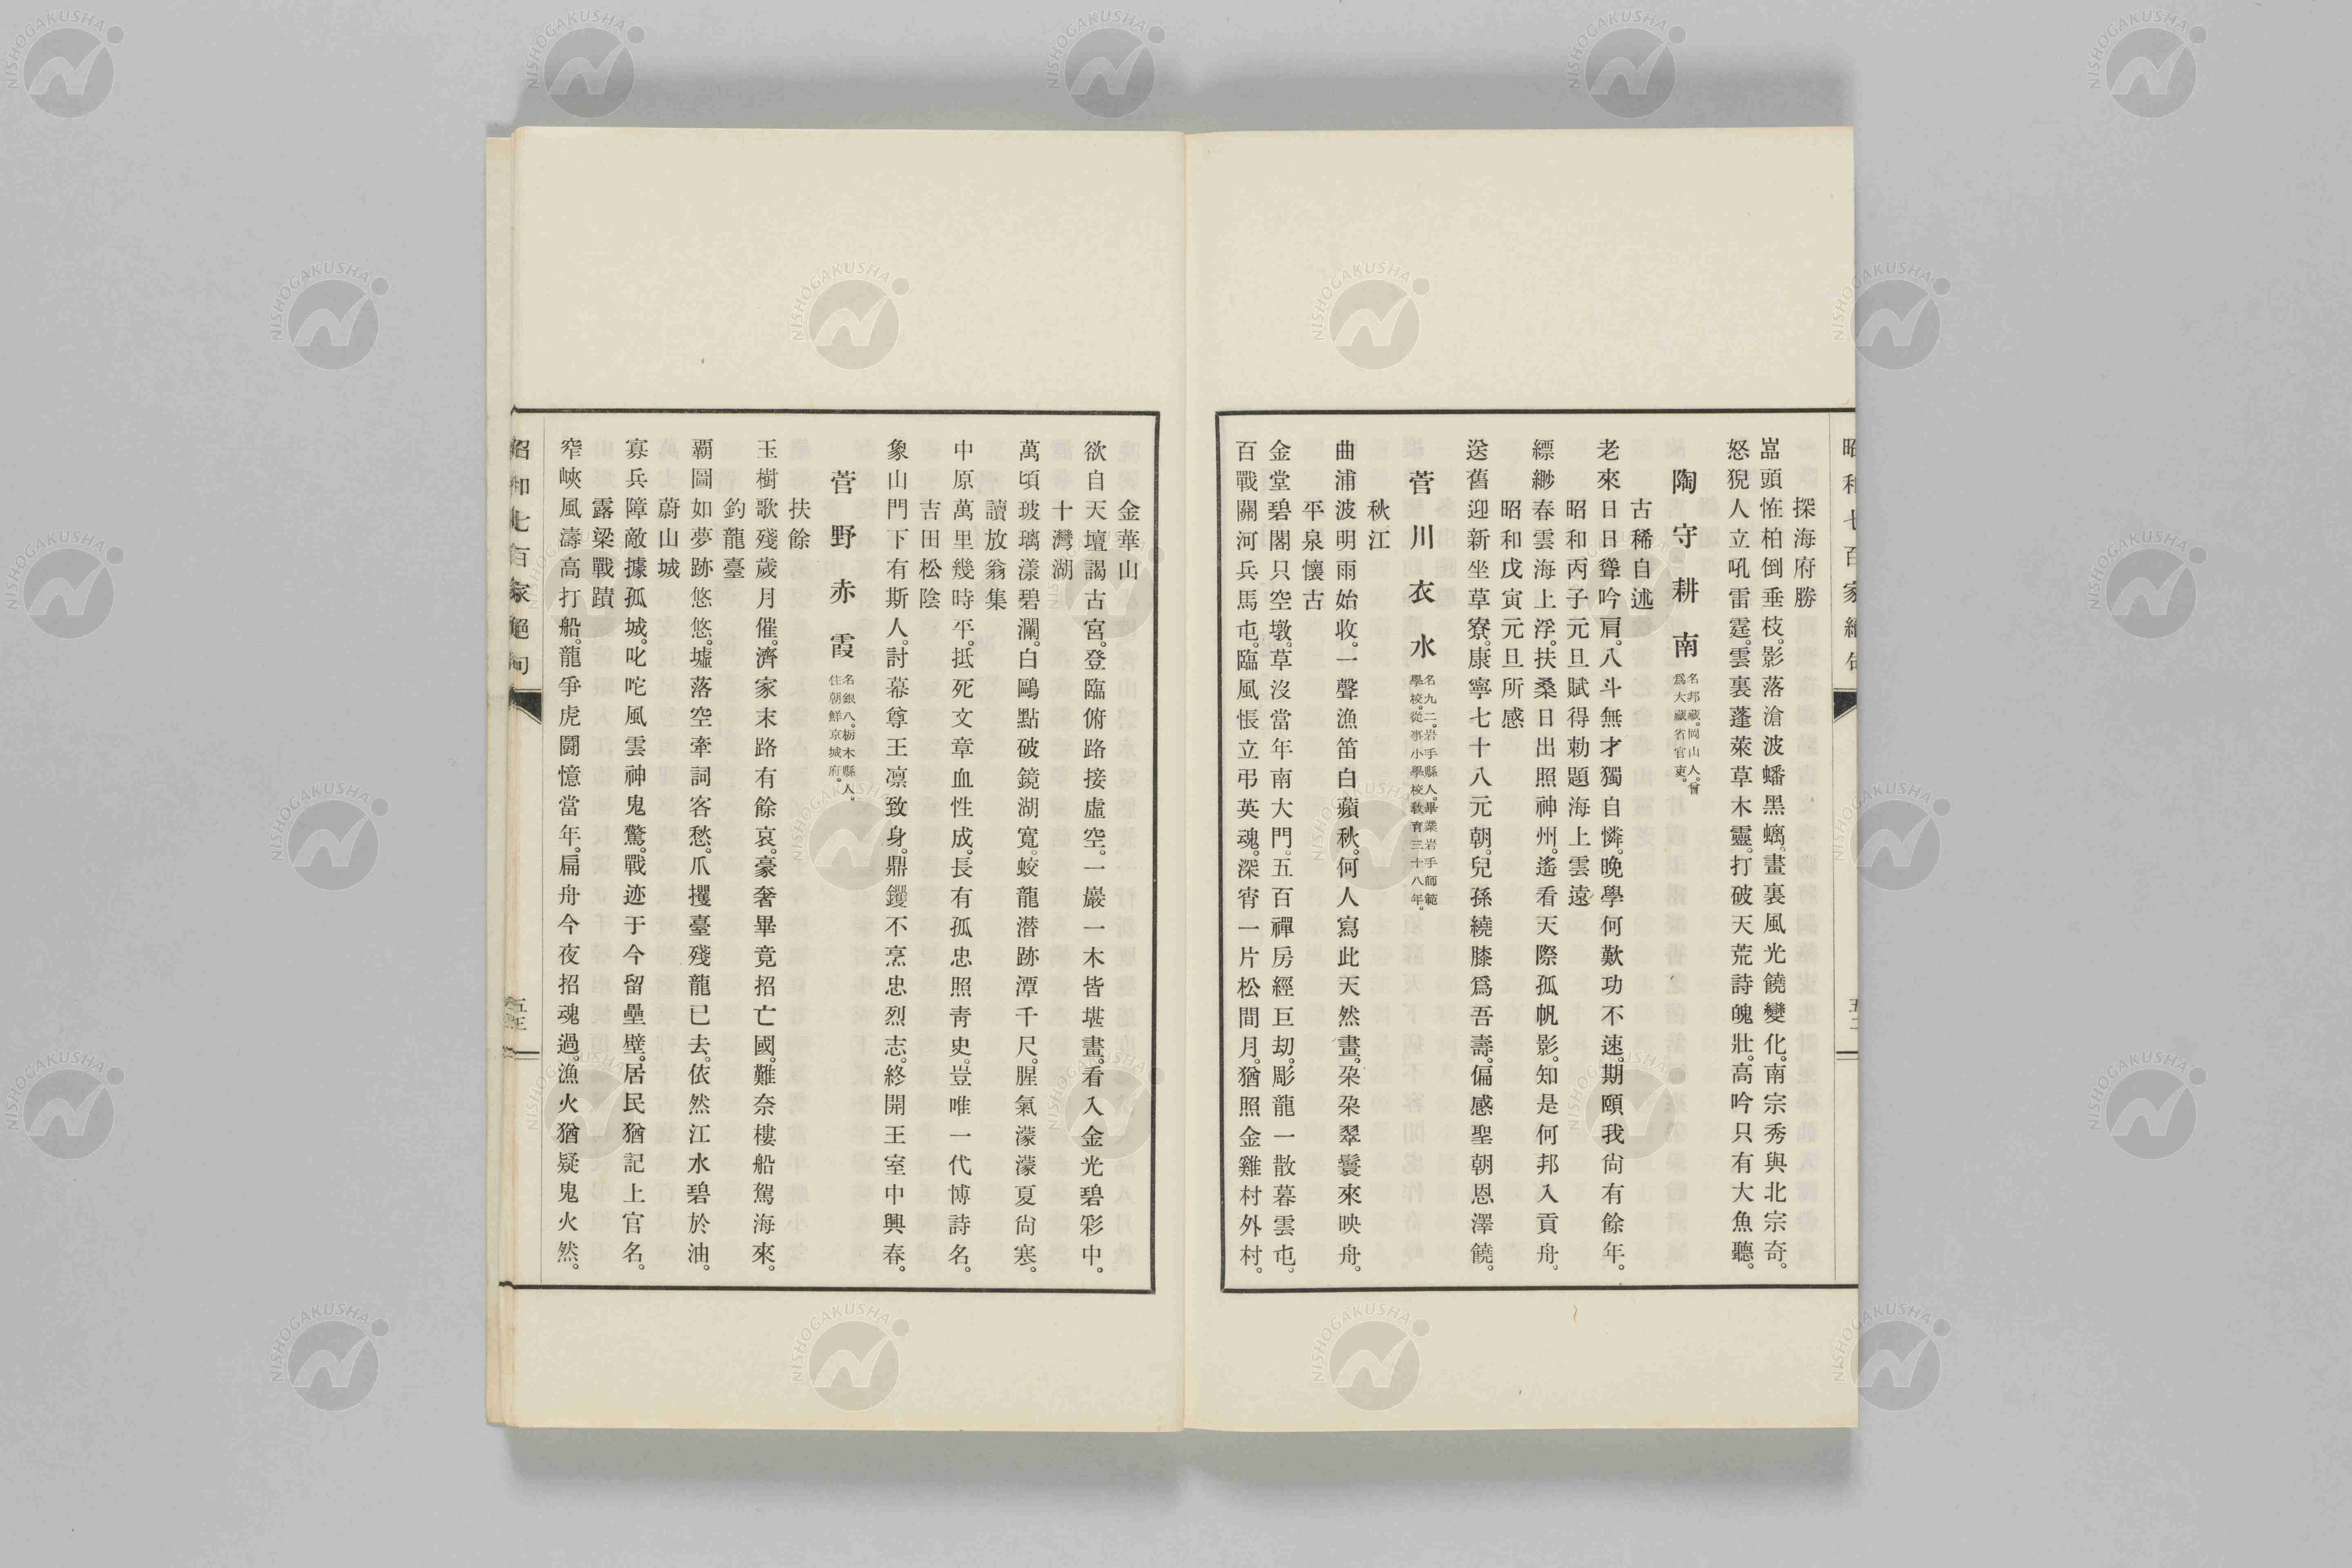 昭和七百家絶句
五二
探海府勝
嵓頭恠柏倒垂枝。影落滄波蟠黑螭。畫裏風光饒變化。南宗秀與北宗奇。
怒猊人立吼雷霆。雲裏蓬萊草木靈。打破天荒詩魄壯。高吟只有大魚聽。
陶守耕南
名邦藏。岡山人。曾
爲大藏省官吏。
古稀自述
老來日日聳吟肩。八斗無才獨自憐。晚學何歎功不速。期頤我尙有餘年。
昭和丙子元旦賦得勅題海上雲遠
縹緲春雲海上浮。扶桑日出照神州。遙看天際孤帆影。知是何邦入貢舟。
昭和戊寅元旦所感
送舊迎新坐草寮。康寧七十八元朝。兒孫繞膝爲吾壽。偏感聖朝恩澤饒。
菅川衣水
名九二。岩手縣人。畢業岩手師範
學校。從事小學校敎育三十八年。
秋江
曲浦波明雨始收。一聲漁笛白蘋秋。何人寫此天然畫。朶朶翠鬟來映舟。
平泉懷古
金堂碧閣只空墩。草沒當年南大門。五百禪房經巨刧。彫龍一散暮雲屯。
百戰關河兵馬屯。臨風悵立弔英魂。深宵一片松間月。猶照金雞村外村。
金華山
欲自天壇謁古宮。登臨俯路接虛空。一巖一木皆堪畫。看入金光碧彩中。
十灣湖
萬頃玻璃漾碧瀾。白鷗點破鏡湖寬。蛟龍潜跡潭千尺。腥氣濛濛夏尙寒。
讀放翁集
中原萬里幾時平。抵死文章血性成。長有孤忠照靑史。豈唯一代博詩名。
吉田松陰
象山門下有斯人。討幕尊王凛致身。鼎鑊不烹忠烈志。終開王室中興春。
菅野赤霞
名銀八。栃木縣人。
住朝鮮京城府。
扶餘
玉樹歌殘歲月催。濟家末路有餘哀。豪奢畢竟招亡國。難奈樓船駕海來。
釣龍臺
覇圖如夢跡悠悠。墟落空牽詞客愁。爪攫臺殘龍已去。依然江水碧於油。
蔚山城
寡兵障敵據孤城。叱咤風雲神鬼驚。戰迹于今留壘壁。居民猶記上官名。
露梁戰蹟
窄峽風濤高打船。龍爭虎鬪憶當年。扁舟今夜招魂過。漁火猶疑鬼火然。
昭和七百家絶句
五三